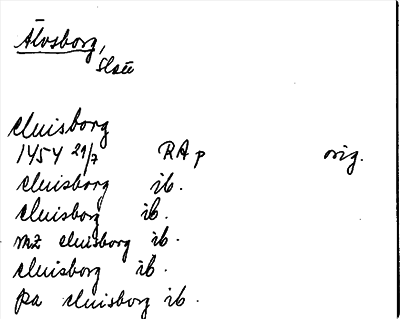 Älvsborg,
slott
eluisborg
1454 29/7 RA p orig.
eluisborg ib.
eluisborg ib.
mz eluisborg ib.
eluisborg ib.
pa eluisborg ib.